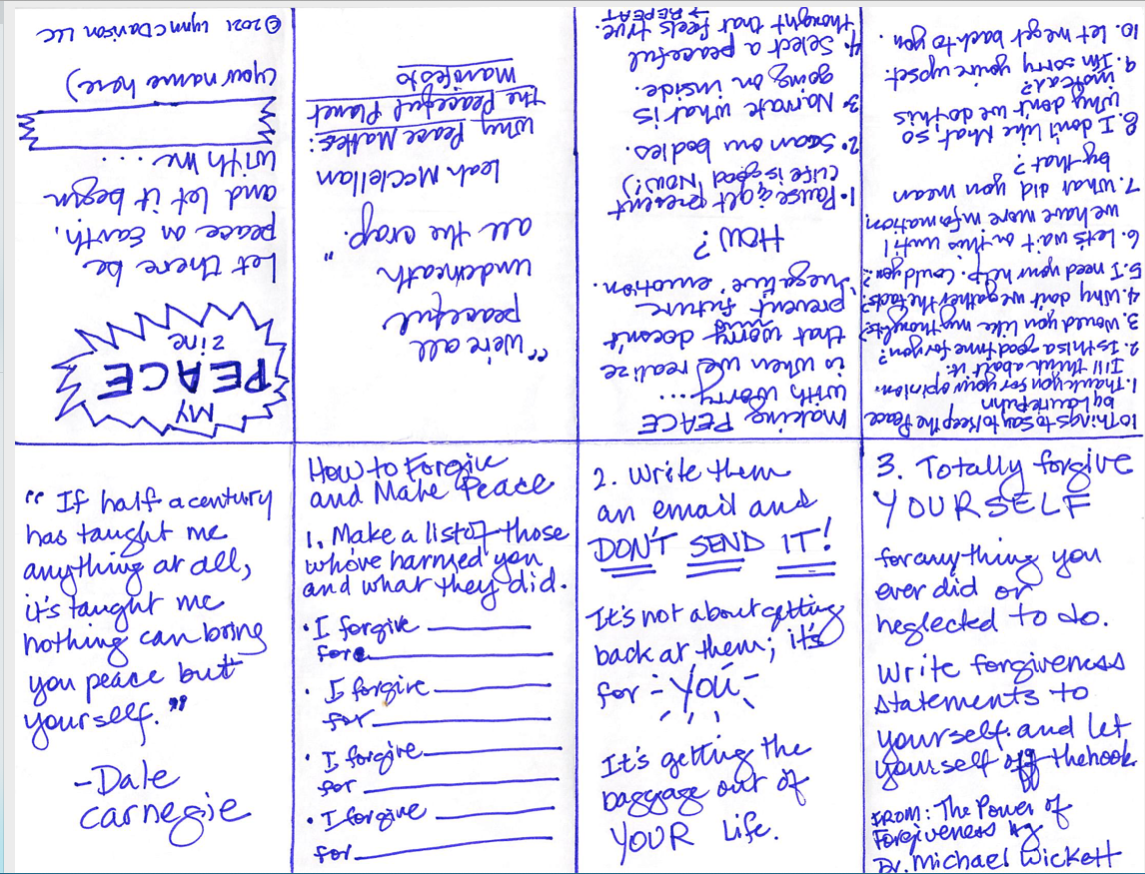 MY
PEACE
zine
Let there be
peace on Earth,
and let it begin
with me ....
(your name here)
©2021 Lynn C Davison LLC
"We're all
peaceful
underneath
all the crap."
Leah McClellan
Why Peace Matters:
The Peaceful Planet
Manifesto
Making PEACE
with worry....
is when we realize
that worry doesn't
prevent future
'negative' emotion.
How?
1. Pause & get present
(Life is good NOW!)
2. Scan our bodies.
3. Narrate what is
going on inside.
4. Select a peaceful
thought that feels true.
→ REPEAT
10 Things to Say to Keep the Peace
by Laurie Puhn
1. Thank you for your opinion.
I'll think about it.
2. Is this a good time for you?
3. Would you like my thoughts?
4. Why don't we gather the facts?
5. I need your help. Could you?
6. Lets wait on this until
we have more information.
7. What did you mean
by that?
8. I don't like that, so,
Why don't we do this
instead?
9. I'm sorry you're upset.
10. Let me get back to you.
"If half a century
has taught me
anything at all,
it's taught me
nothing can bring
you peace but
yourself."
-Dale
Carnegie
How to Forgive
and Make Peace
1. Make a list of those
who've harmed you
and what they did.
• I forgive
for
• I forgive
for
• I forgive
for
• I forgive
for
2. Write them
an email and
DON'T SEND IT!
It's not about getting
back at them; it's
for -YOU-
It's getting the
baggage out of
YOUR Life.
3. Totally forgive
YOURSELF
for anything you
ever did or
neglected to do.
Write forgiveness
statements to
yourself and let
yourself off the hook
FROM: The Power of
Forgiveness by
Dr. Michael Wickett